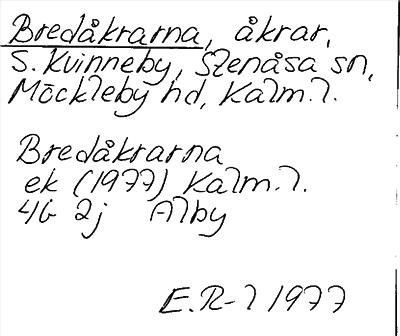 Bredåkrarna, åkrar,
S. Kvinneby, Stenåsa sn,
Möckleby hd, Kalm. l.
Bredåkrarna
ek (1977) Kalm. l.
4G 2j Alby
E.R-l 1977